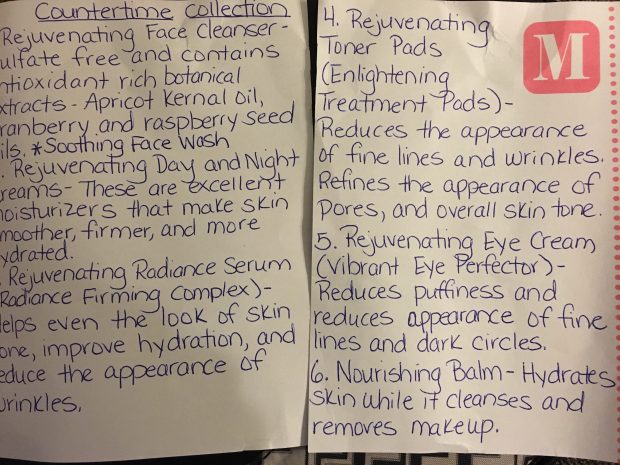 Countertime collection
Rejuvenating Face Cleanser-
ulfate free and contains
ntioxidant rich botanical
xtracts - Apricot Kernal Oil,
ranberry and raspberry seed
ils. *Soothing Face Wash
. Rejuvenating Day and Night
reams - These are excellent
oisturizers that make skin
moother, firmer, and more
ydrated.
. Rejuvenating Radiance Serum
Radiance Firming Complex) -
elps even the look of skin
one, improve hydration, and
educe the appearance of
wrinkles.
4. Rejuvenating
Toner Pads
(Enlightening
Treatment Pads) -
Reduces the appearance
of fine lines and wrinkles.
Refines the appearance of
pores, and overall skin tone.
5. Rejuvenating Eye Cream
(Vibrant Eye Perfector) -
Reduces puffiness and
reduces appearance of fine
lines and dark circles.
6. Nourishing Balm - Hydrates
skin while it cleanses and
removes makeup.
M